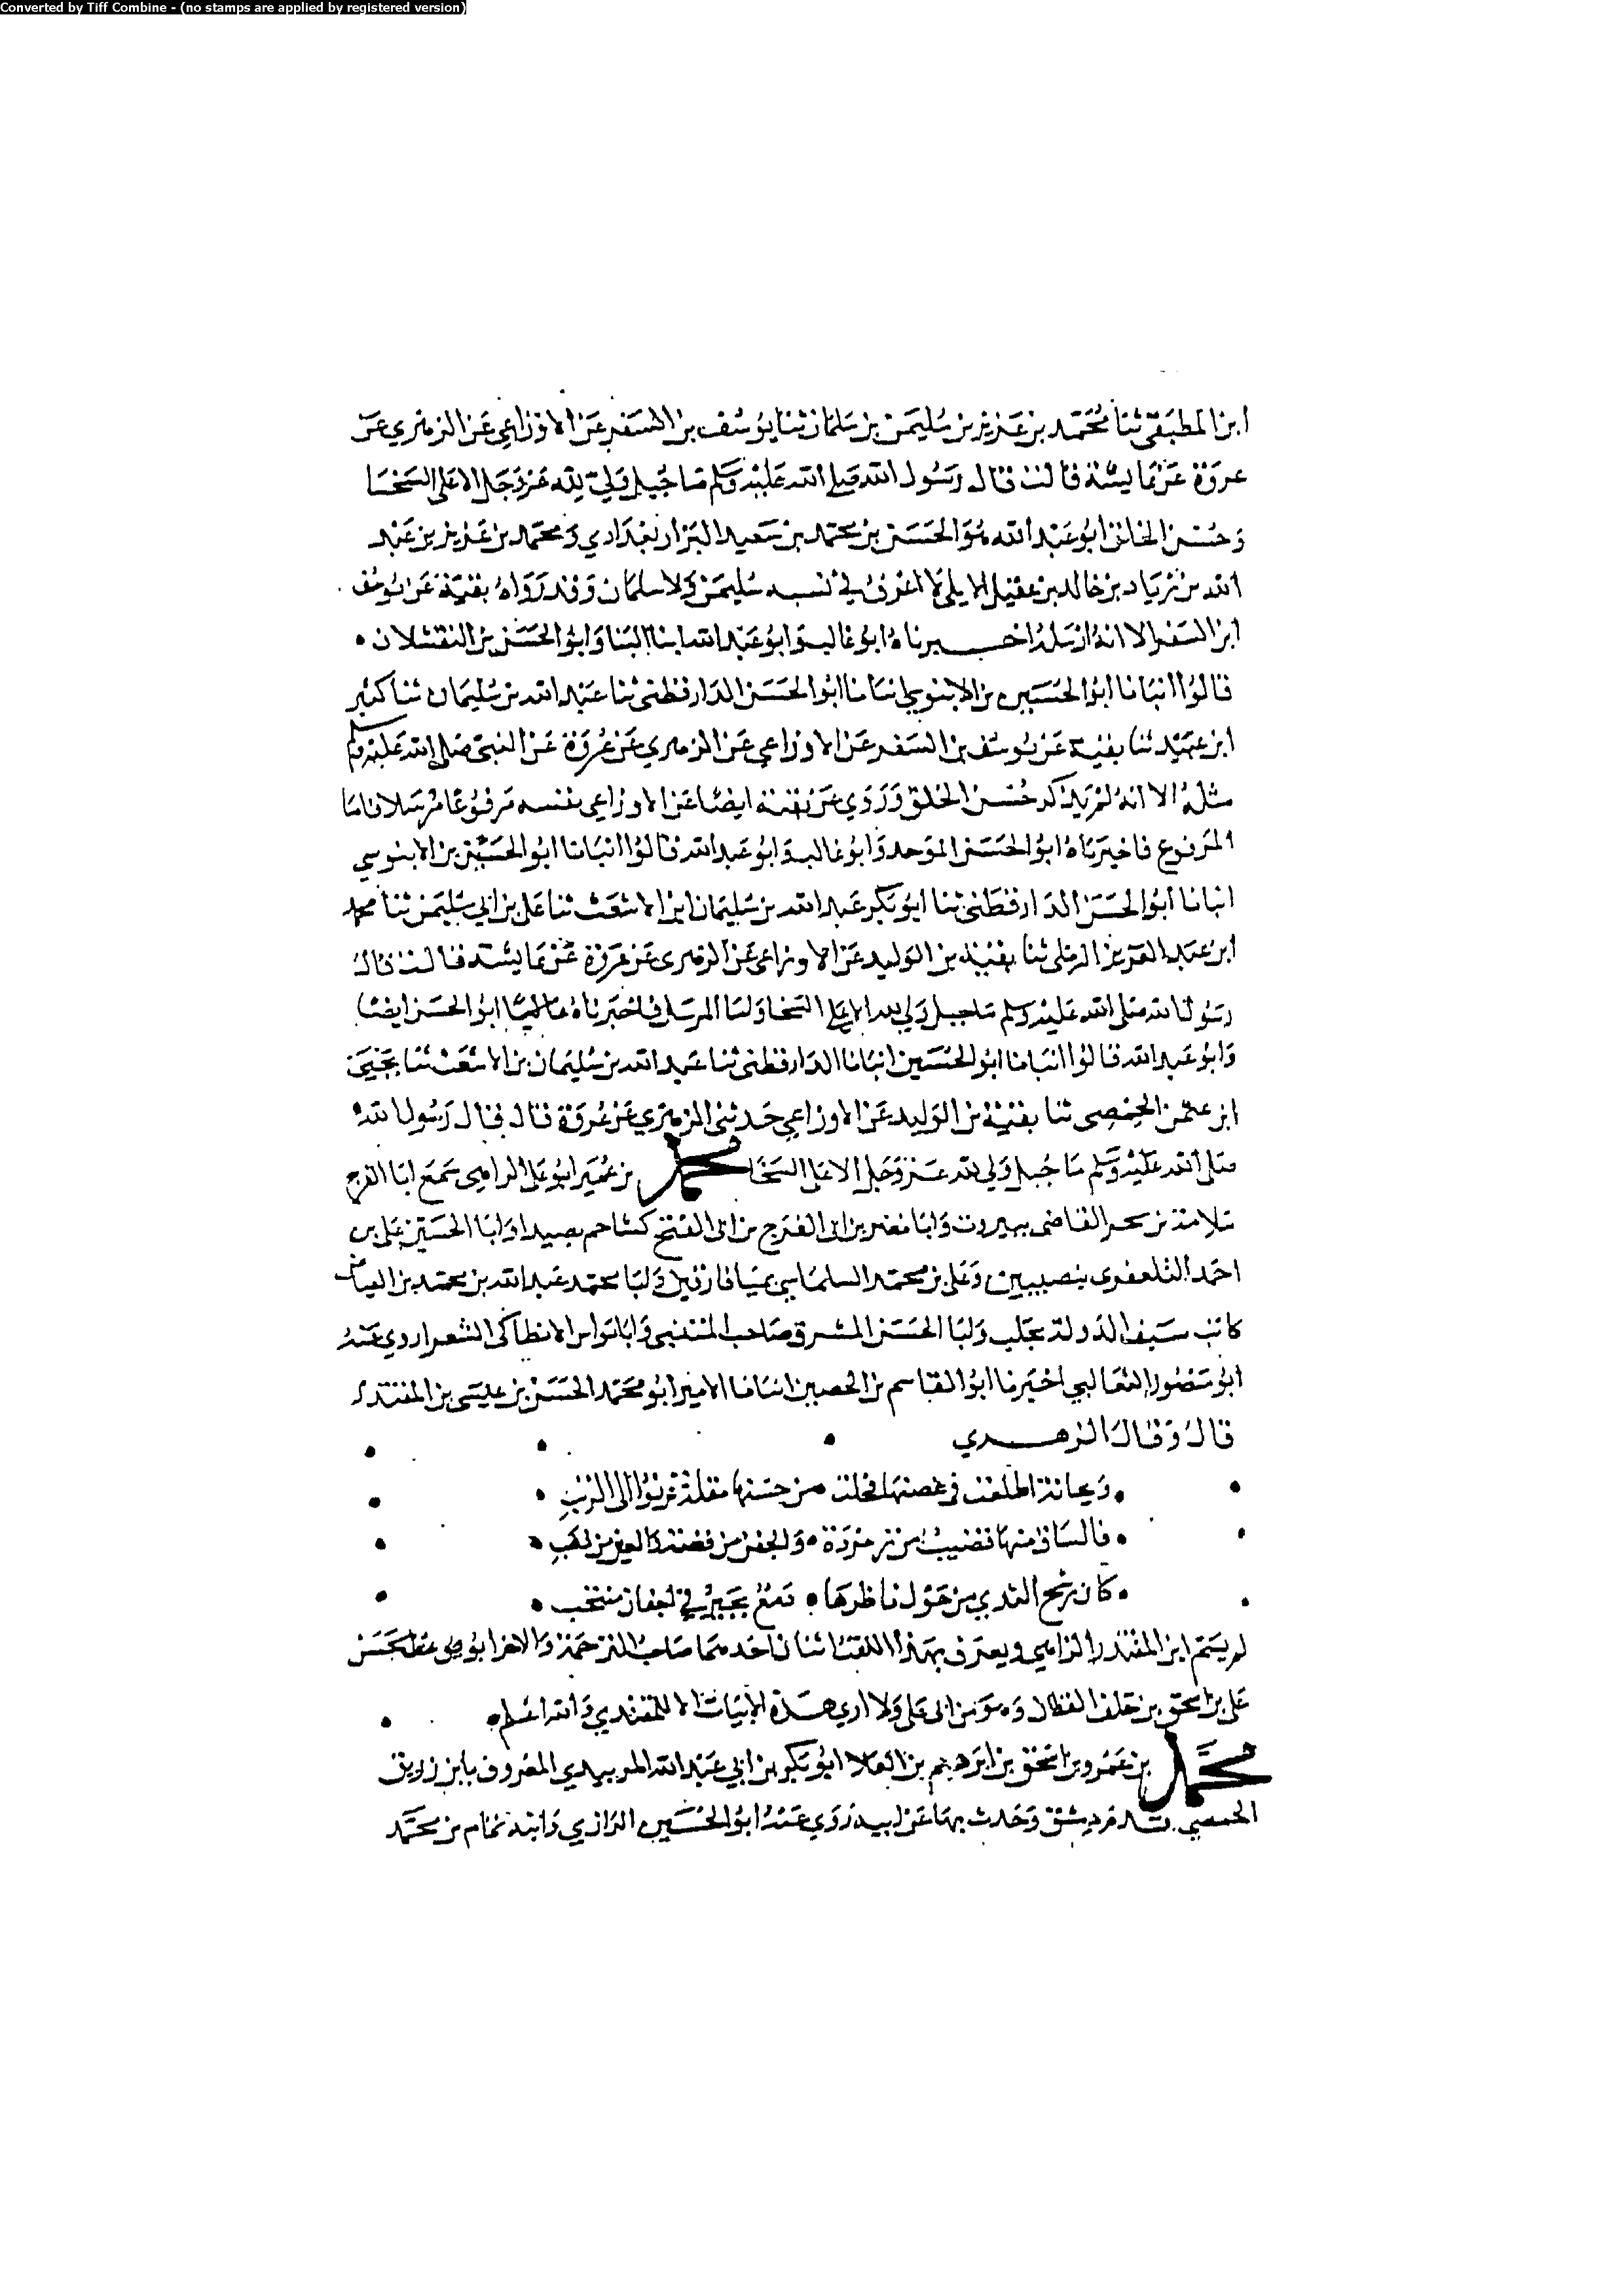 Converted by Tiff Combine - (no stamps are applied by registered version)
ابن المطبقي ثنا محمد بن عزيز بن سليمن بن سلمان ثنا يوسف بن السفر عن الاوزاعي عن الزهري عن
عروة عن عايشة قالت قال رسول الله صلى الله عليه وسلم ما جبل ولي لله عز وجل الا على السخا
وحسن الخلق ابو عبد الله هو الحسن بن محمد بن سعيد البزار بغدادي ومحمد بن عزيز بن عبد
الله بن زياد بن خالد بن عقيل الايلي لا اعرف في نسبه سليمن ولا سلمان وقد رواه بقية عن يوسف
ابن السفر الا انه ارسله اخبرناه ابو غالب وابو عبد الله ابنا البنا وابو الحسن بن النقشلان
قالوا انبانا ابو الحسين بن الابنوسي انبانا ابو الحسن الدارقطني ثنا عبد الله بن سليمان ثنا كثير
ابن عبيد ثنا بقية عن يوسف بن السفر عن الاوزاعي عن الزهري عن عروة عن النبي صلى الله عليه وسلم
مثله الا انه لم يذكر حسن الخلق وروي عن بقية ايضا عن الاوزاعي نفسه مرفوعا مرسلا فاما
المرفوع فاخبرناه ابو الحسن الموحد وابو غالب وابو عبد الله قالوا انبانا ابو الحسين بن الابنوسي
انبانا ابو الحسن الدارقطني ثنا ابو بكر عبد الله بن سليمان ابن الاشعث ثنا علي بن ابي سليمن ثنا محمد
ابن عبد العزيز الرملي ثنا بقية بن الوليد عن الاوزاعي عن الزهري عن عروة عن عايشة قالت قال
رسول الله صلى الله عليه وسلم ما جبل ولي لله الا على السخا واما المرسل فاخبرناه ابو الحسن ايضا
وابو عبد الله قالوا انبانا ابو الحسين انبانا الدارقطني ثنا عبد الله بن سليمان بن الاشعث ثنا يحيى
ابن عثمن الحمصي ثنا بقية بن الوليد عن الاوزاعي حدثني الزهري عن عروة قال قال رسول الله
صلى الله عليه وسلم ما جبل ولي لله عز وجل الا على السخا محمد بن عمير ابو علي الزاهي سمع ابا الفرج
سلامة بن بحر القاضي ببيروت وابا نصر بن ابي الفتح كشاجم بصيدا وابا الحسين علي بن
احمد التلعفري بنصيبين وعلي بن محمد السلماسي بميافارقين وابا محمد عبد الله بن محمد بن الفياض
كاتب سيف الدولة بحلب وابا الحسن المشرق صاحب المتنبي وابا نواس الانطاكي الشعر روي عنه
ابو منصور الثعالبي اخبرنا ابو القاسم بن الحصين انبانا الامير ابو محمد الحسن بن عيسى بن المقتدر
قال وقال الزهدي
وريحانة اطلعت في غصنها فحلت من حسنها مقلة ترنوا الى الريب
فالساق منها قضيب من زمردة والجفن من فضة والعين من ذهب
كان رشح الندي من حول ناظرها دمع تحير في اجفان منتحب
لم يسم ابن المقتدر الزاهي ويعرف بهذا اللقب اثنان احدهما صاحب الترجمة والاخر ابو
علي بن اسحق بن خلف القطان ولا اري هذه الابيات الا للمقتدري والله اعلم
محمد بن عمرو بن اسحق بن ابرهيم بن العلا ابو بكر بن ابي عبد الله الزبيدي المعروف بابن زبريق
الحمصي قدم دمشق وحدث بها عن ابيه روي عنه ابو الحسين الرازي وابنه تمام بن محمد